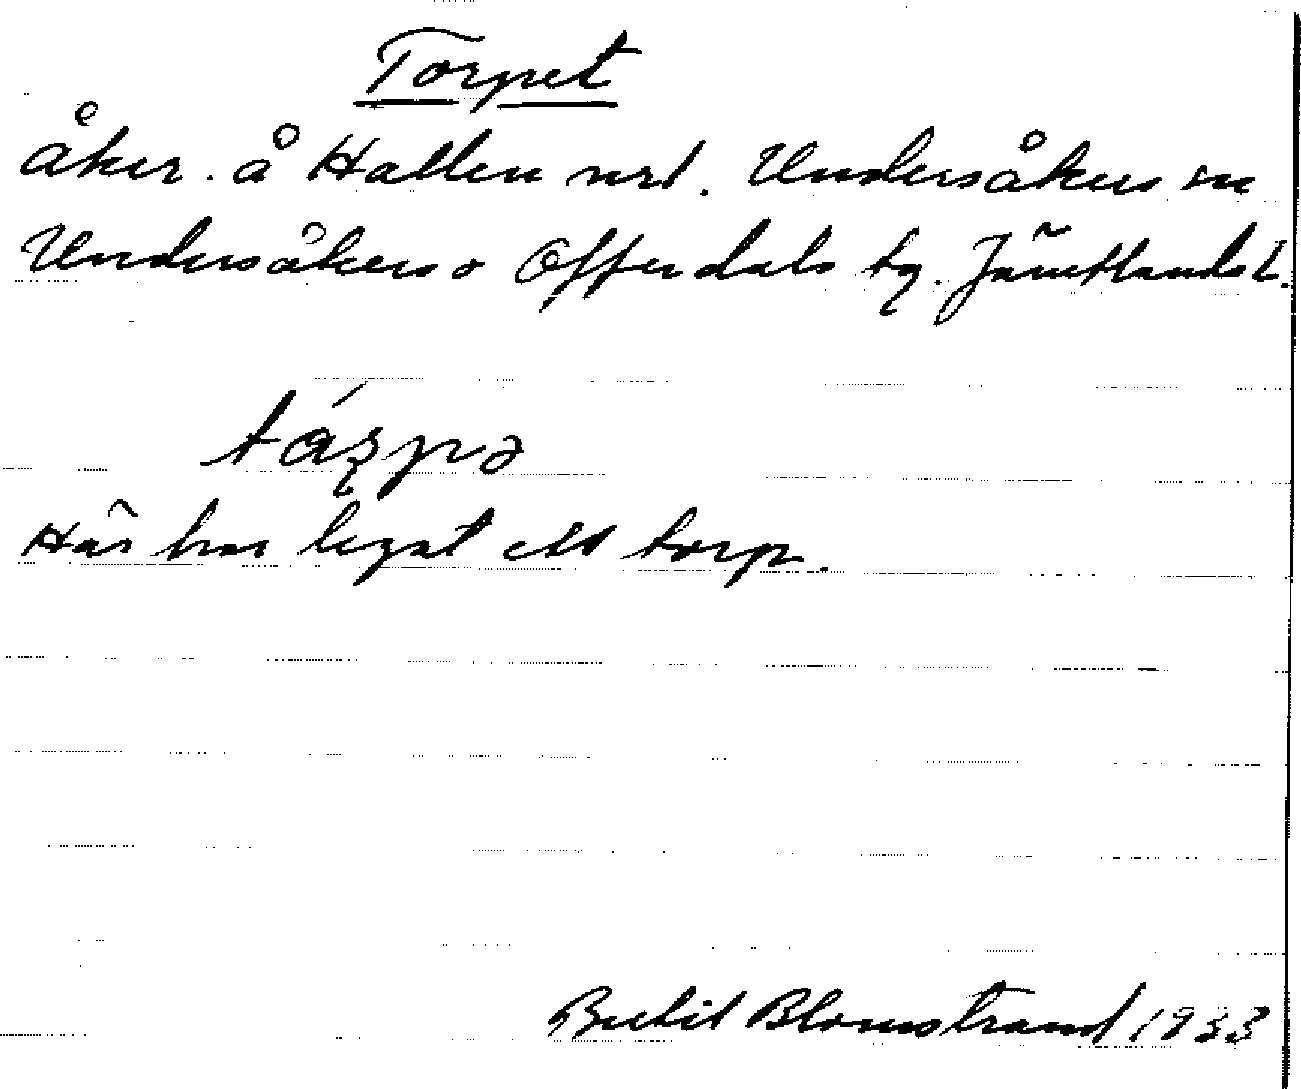 Torpet
åker. å Hallen nr1. Undersåkers sn
Undersåkers o Offerdals tg. Jämtlands l.
Här har legat ett torp.
Bertil Blomstrand 1933